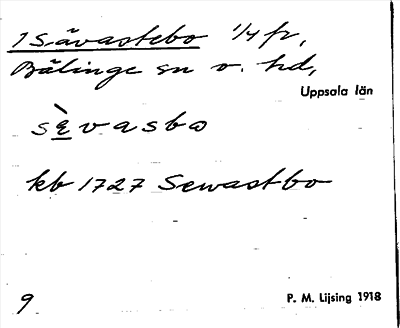 1 Sävastebo 1/4 fr,
Bälinge sn o. hd,
Uppsala län
sèvasbω
kb 1727 Sewastbo
9
P. M. Lijsing 1918